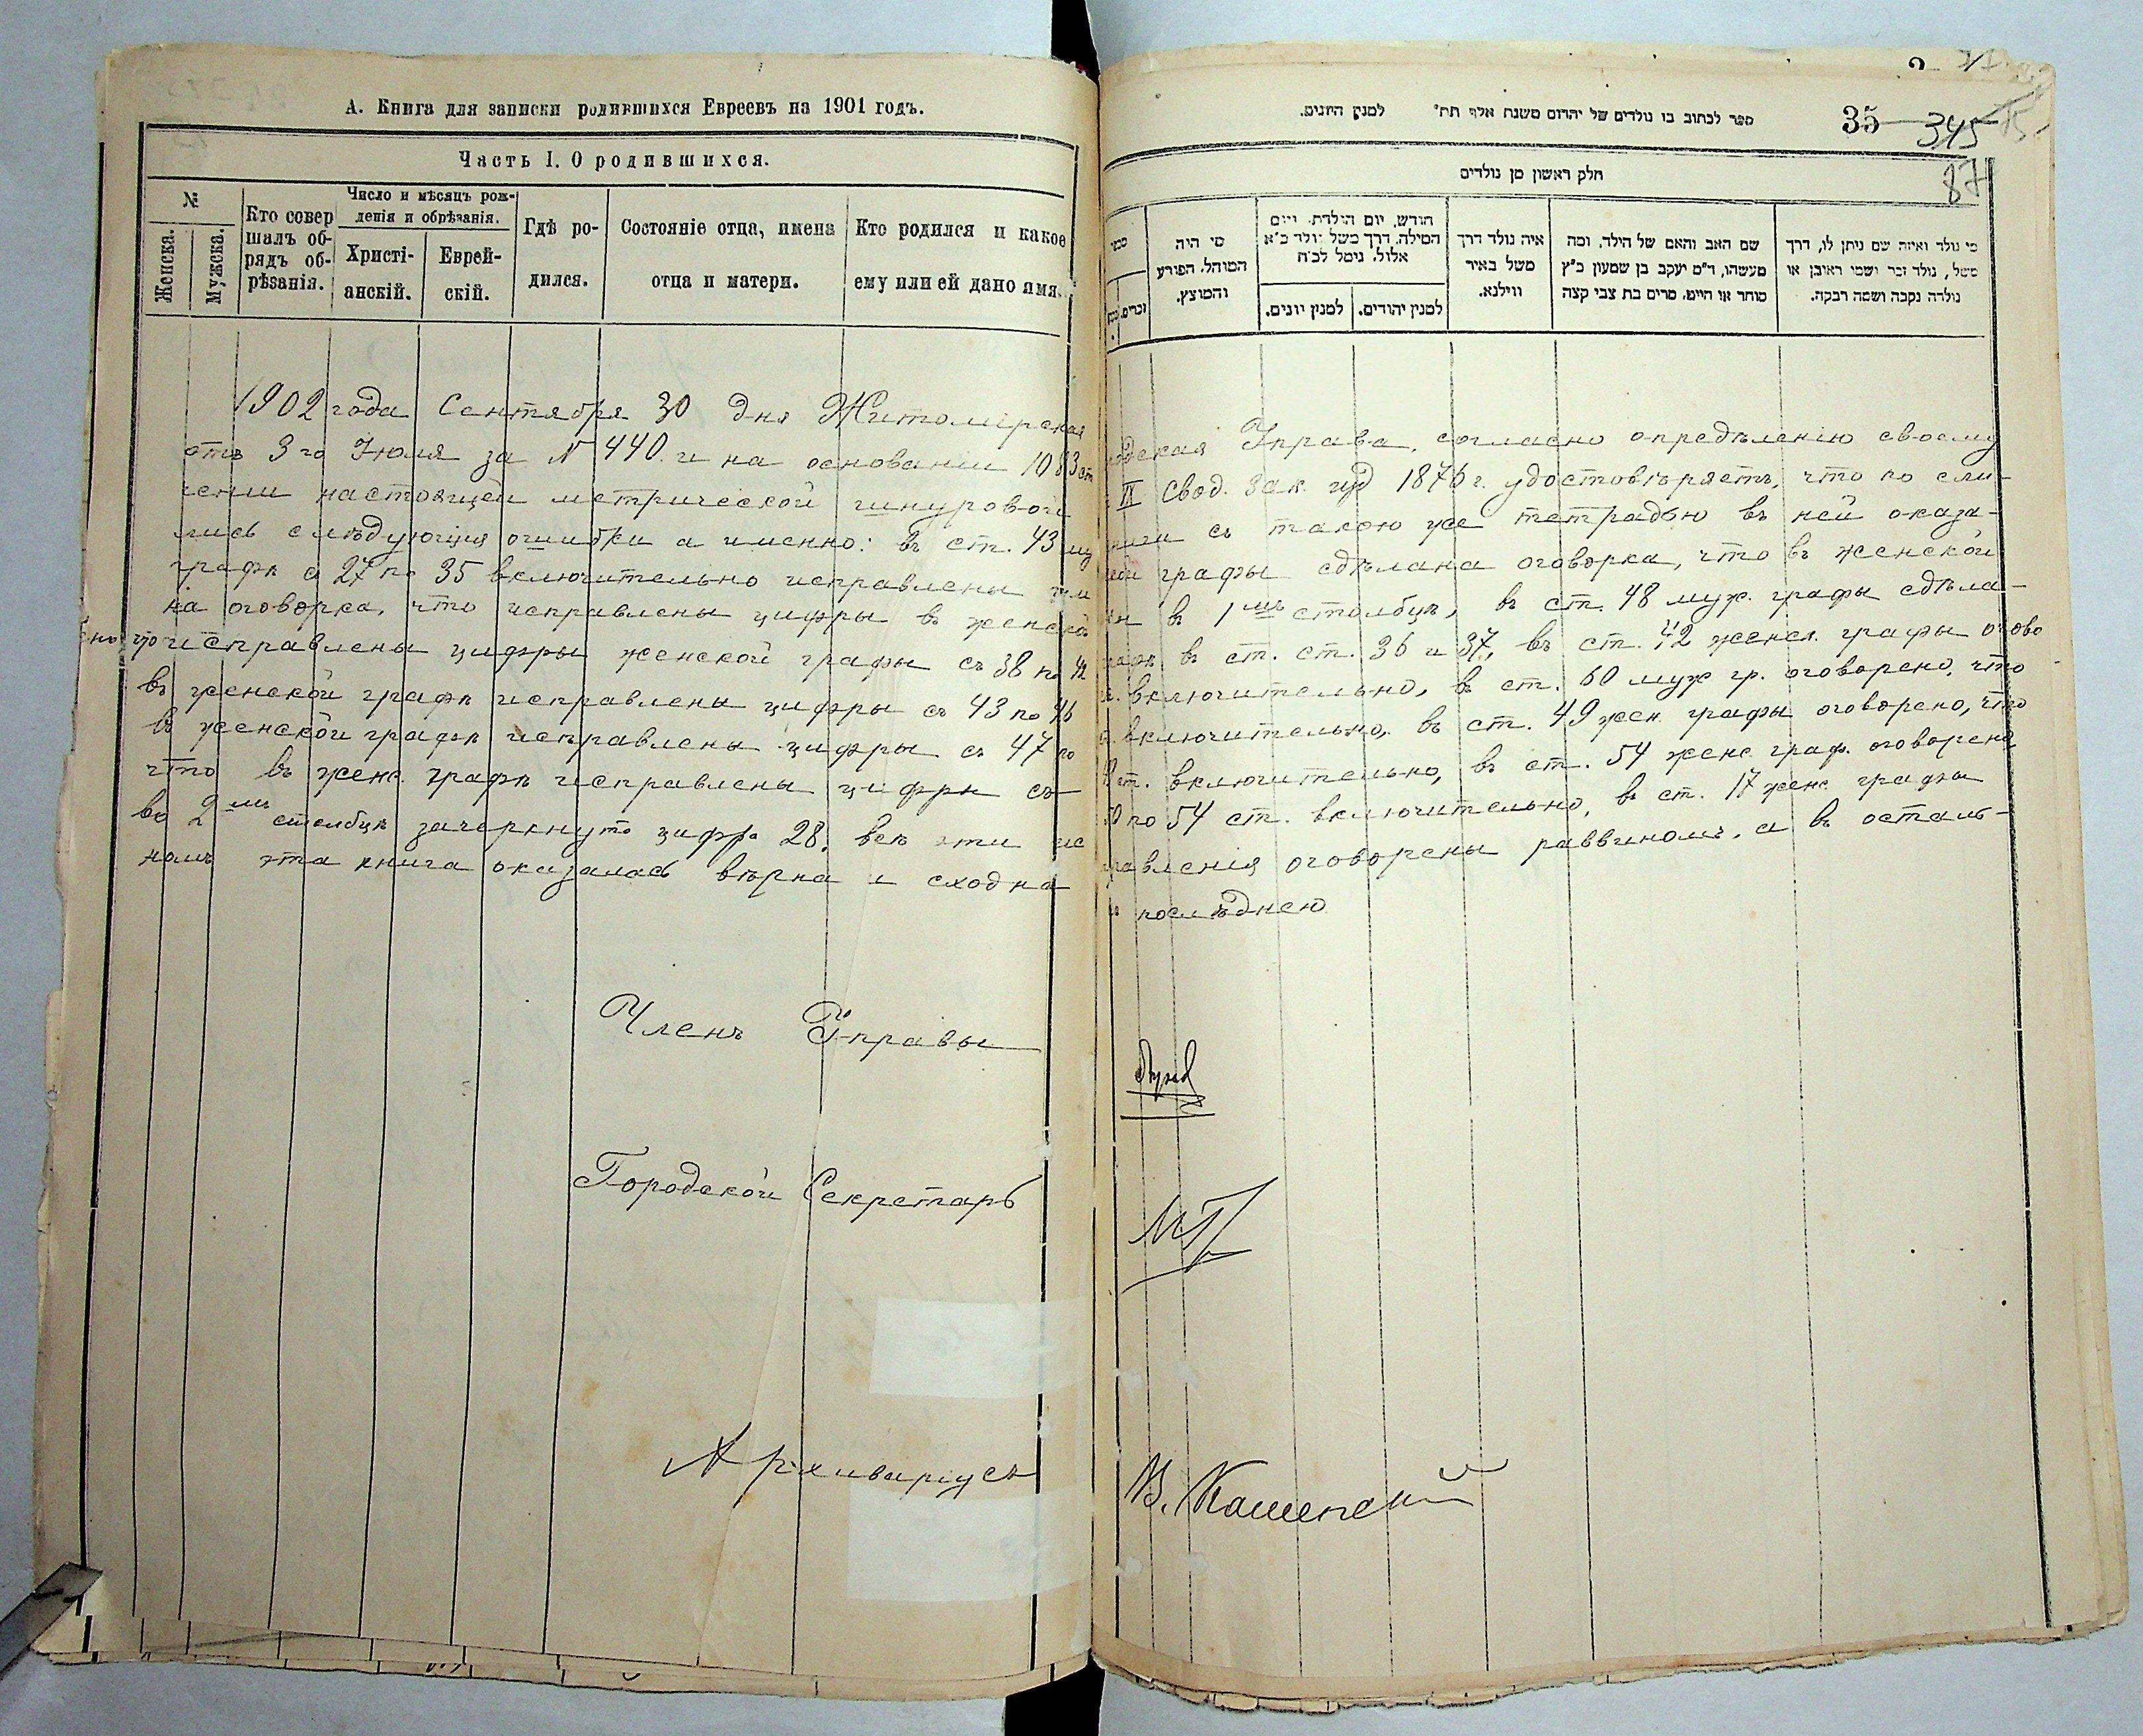 А. Книга для записки родившихся Евреевъ на 1901 годъ.
Часть I. О родившихся.
№
Женска.
Мужска.
Кто совер
шалъ об-
рядъ об-
рѣзанія.
Число и мѣсяцъ рож-
денія и обрѣзанія.
Христі-
анскій.
Еврей-
скій.
Гдѣ ро-
дился.
Состояніе отца, имена
отца и матери.
Кто родился и какое
ему или ей дано имя.
ספר לכתוב בו נולדים של יהודים משנת אלף תת" למנין היונים.
35
345
87
חלק ראשון מן נולדים
מי היה
המוהל, הפורע
והמוצץ.
חודש, יום הולדת, ויום
המילה, דרך משל נולד כ"א
אלול, נימל לכ"ח
למנין יונים.
למנין יהודים.
איה נולד דרך
משל באיר
ווילנא.
שם האב והאם של הילד, ומה
מעשהו, ד"מ יעקב בן שמעון כ"ץ
סוחר או חייט, מרים בת צבי קצה
מי נולד ואיזה שם ניתן לו, דרך
משל, נולד זכר ושמו ראובן או
נולדה נקבה ושמה רבקה.
זכרים.
1902 года Сентября 30 дня Житомірская Городская Управа, согласно опредѣленію своему
отъ 3го Іюля за № 440. и на основаніи 1083 ст. IX Свод. Зак. изд 1876 г. удостовѣряетъ, что по сли-
ченіи настоящей метрической шнуровой книги съ такою же тетрадью въ ней оказа-
лись слѣдующія ошибки а именно: въ ст. 43 муж графы сдѣлана оговорка, что въ женской
графѣ с 27 по 35 включительно исправлены в 1мъ столбцѣ, въ ст. 48 муж. графы сдѣла-
на оговорка, что исправлены цифры въ женской графѣ в ст. ст. 36 и 37, въ ст. 42 женск. графы огово
что исправлены цифры женской графы съ 38 по включительно, въ ст. 60 муж гр. оговорено, что
въ женской графѣ исправлены цифры съ 43 по 46 включительно, въ ст. 49 жен. графы оговорено, что
въ женской графѣ исправлены цифры съ 47 по ст. включительно, въ ст. 54 женс граф. оговорено,
что въ женс. графѣ исправлены цифры съ 50 по 54 ст. включительно, въ ст. 17 женс графы
во 2мъ столбцѣ зачеркнуто цифра 28. всѣ эти исправленія оговорены раввиномъ, а въ осталь-
номъ эта книга оказалась вѣрна и сходна съ послѣднею
Членъ Управы
Городской Секретарь
Архиваріусъ В. Каменскій